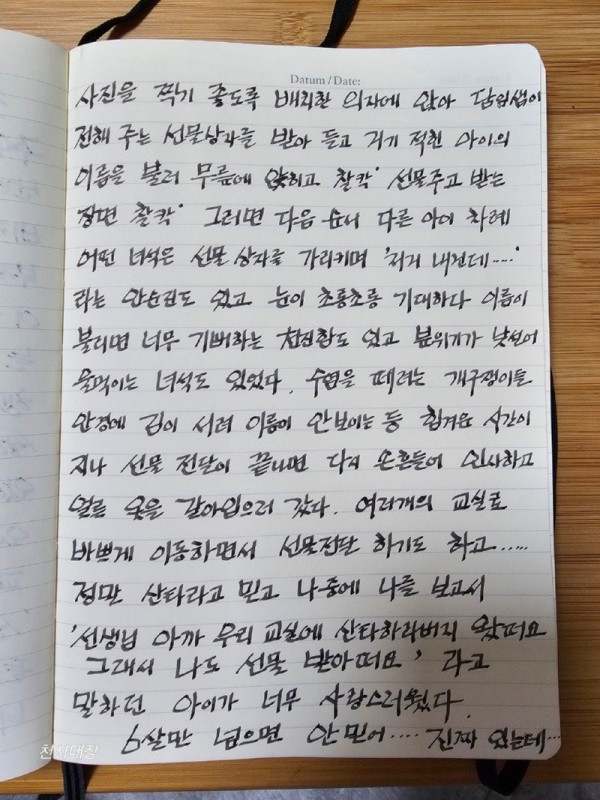 Datum / Date:
사진을 찍기 좋도록 배치한 의자에 앉아 담임샘이
전해 주는 선물상자를 받아 들고 거기 적힌 아이의
이름을 불러 무릎에 앉히고 찰칵' 선물주고 받는
장면 찰칵' 그러면 다음 순서 다른 아이 차례
어떤 녀석은 선물 상자를 가리키며 '저거 내건데....'
라는 안순진도 있고 눈이 초롱초롱 기대하다 이름이
불리면 너무 기뻐하는 천진함도 있고 분위기가 낯설어
울먹이는 녀석도 있었다. 수염을 떼려는 개구쟁이들
안경에 김이 서려 이름이 안보이는 등 힘겨운 시간이
지나 선물 전달이 끝나면 다시 손흔들어 인사하고
얼른 옷을 갈아입으러 갔다. 여러개의 교실로
바쁘게 이동하면서 선물전달 하기도 하고.....
정말 산타라고 믿고 나중에 나를 보고서
'선생님 아까 우리 교실에 산타하라버지 왔떠요
그래서 나도 선물 받아떠요' 라고
말하던 아이가 너무 사랑스러웠다.
6살만 넘으면 안 믿어.... 진짜 있는데...
천사대장